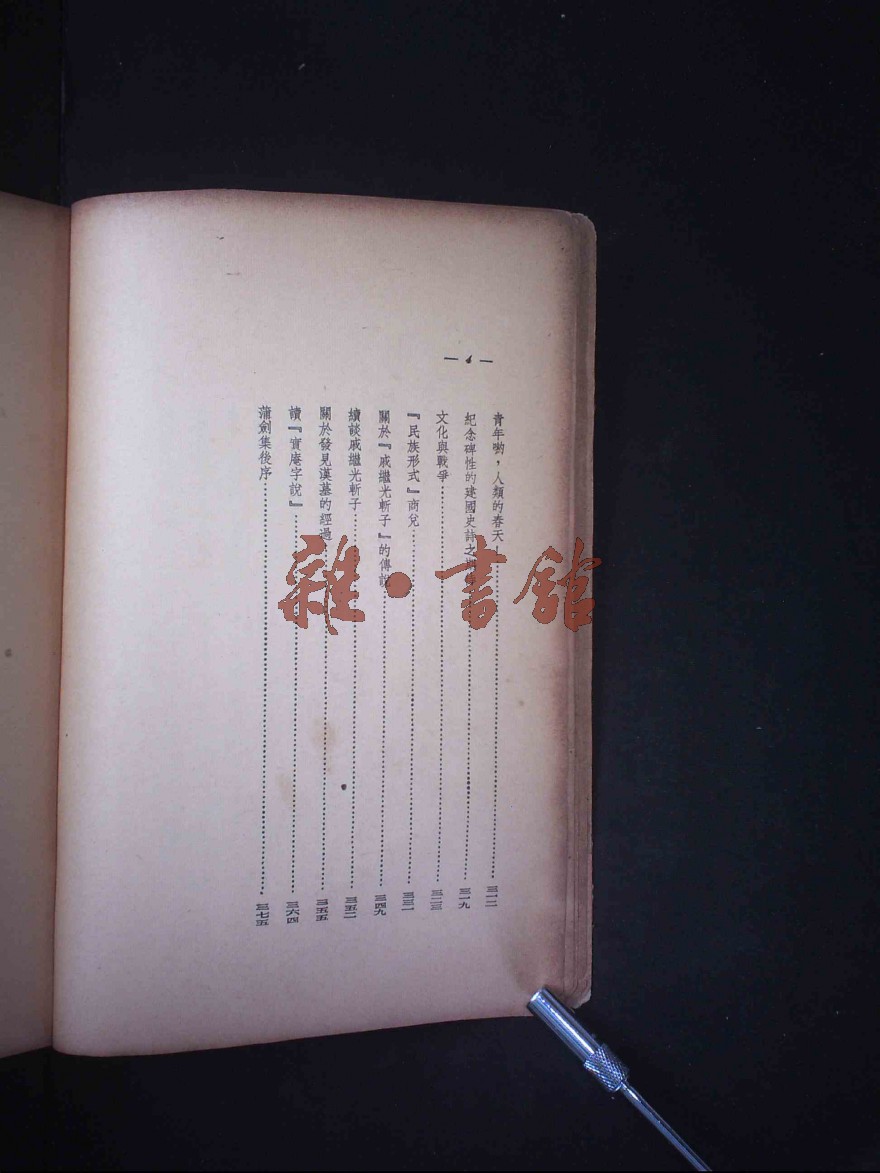 青年喲，人類的春天！……三一二
紀念碑性的建國史詩之期……三一九
文化與戰爭……三二三
『民族形式』商兌……三三一
關於『戚繼光斬子』的傳說……三四九
續談戚繼光斬子……三五二
關於發見漢墓的經過……三五五
讀『實庵字說』……三六四
蒲劍集後序……三七五
雜·書館